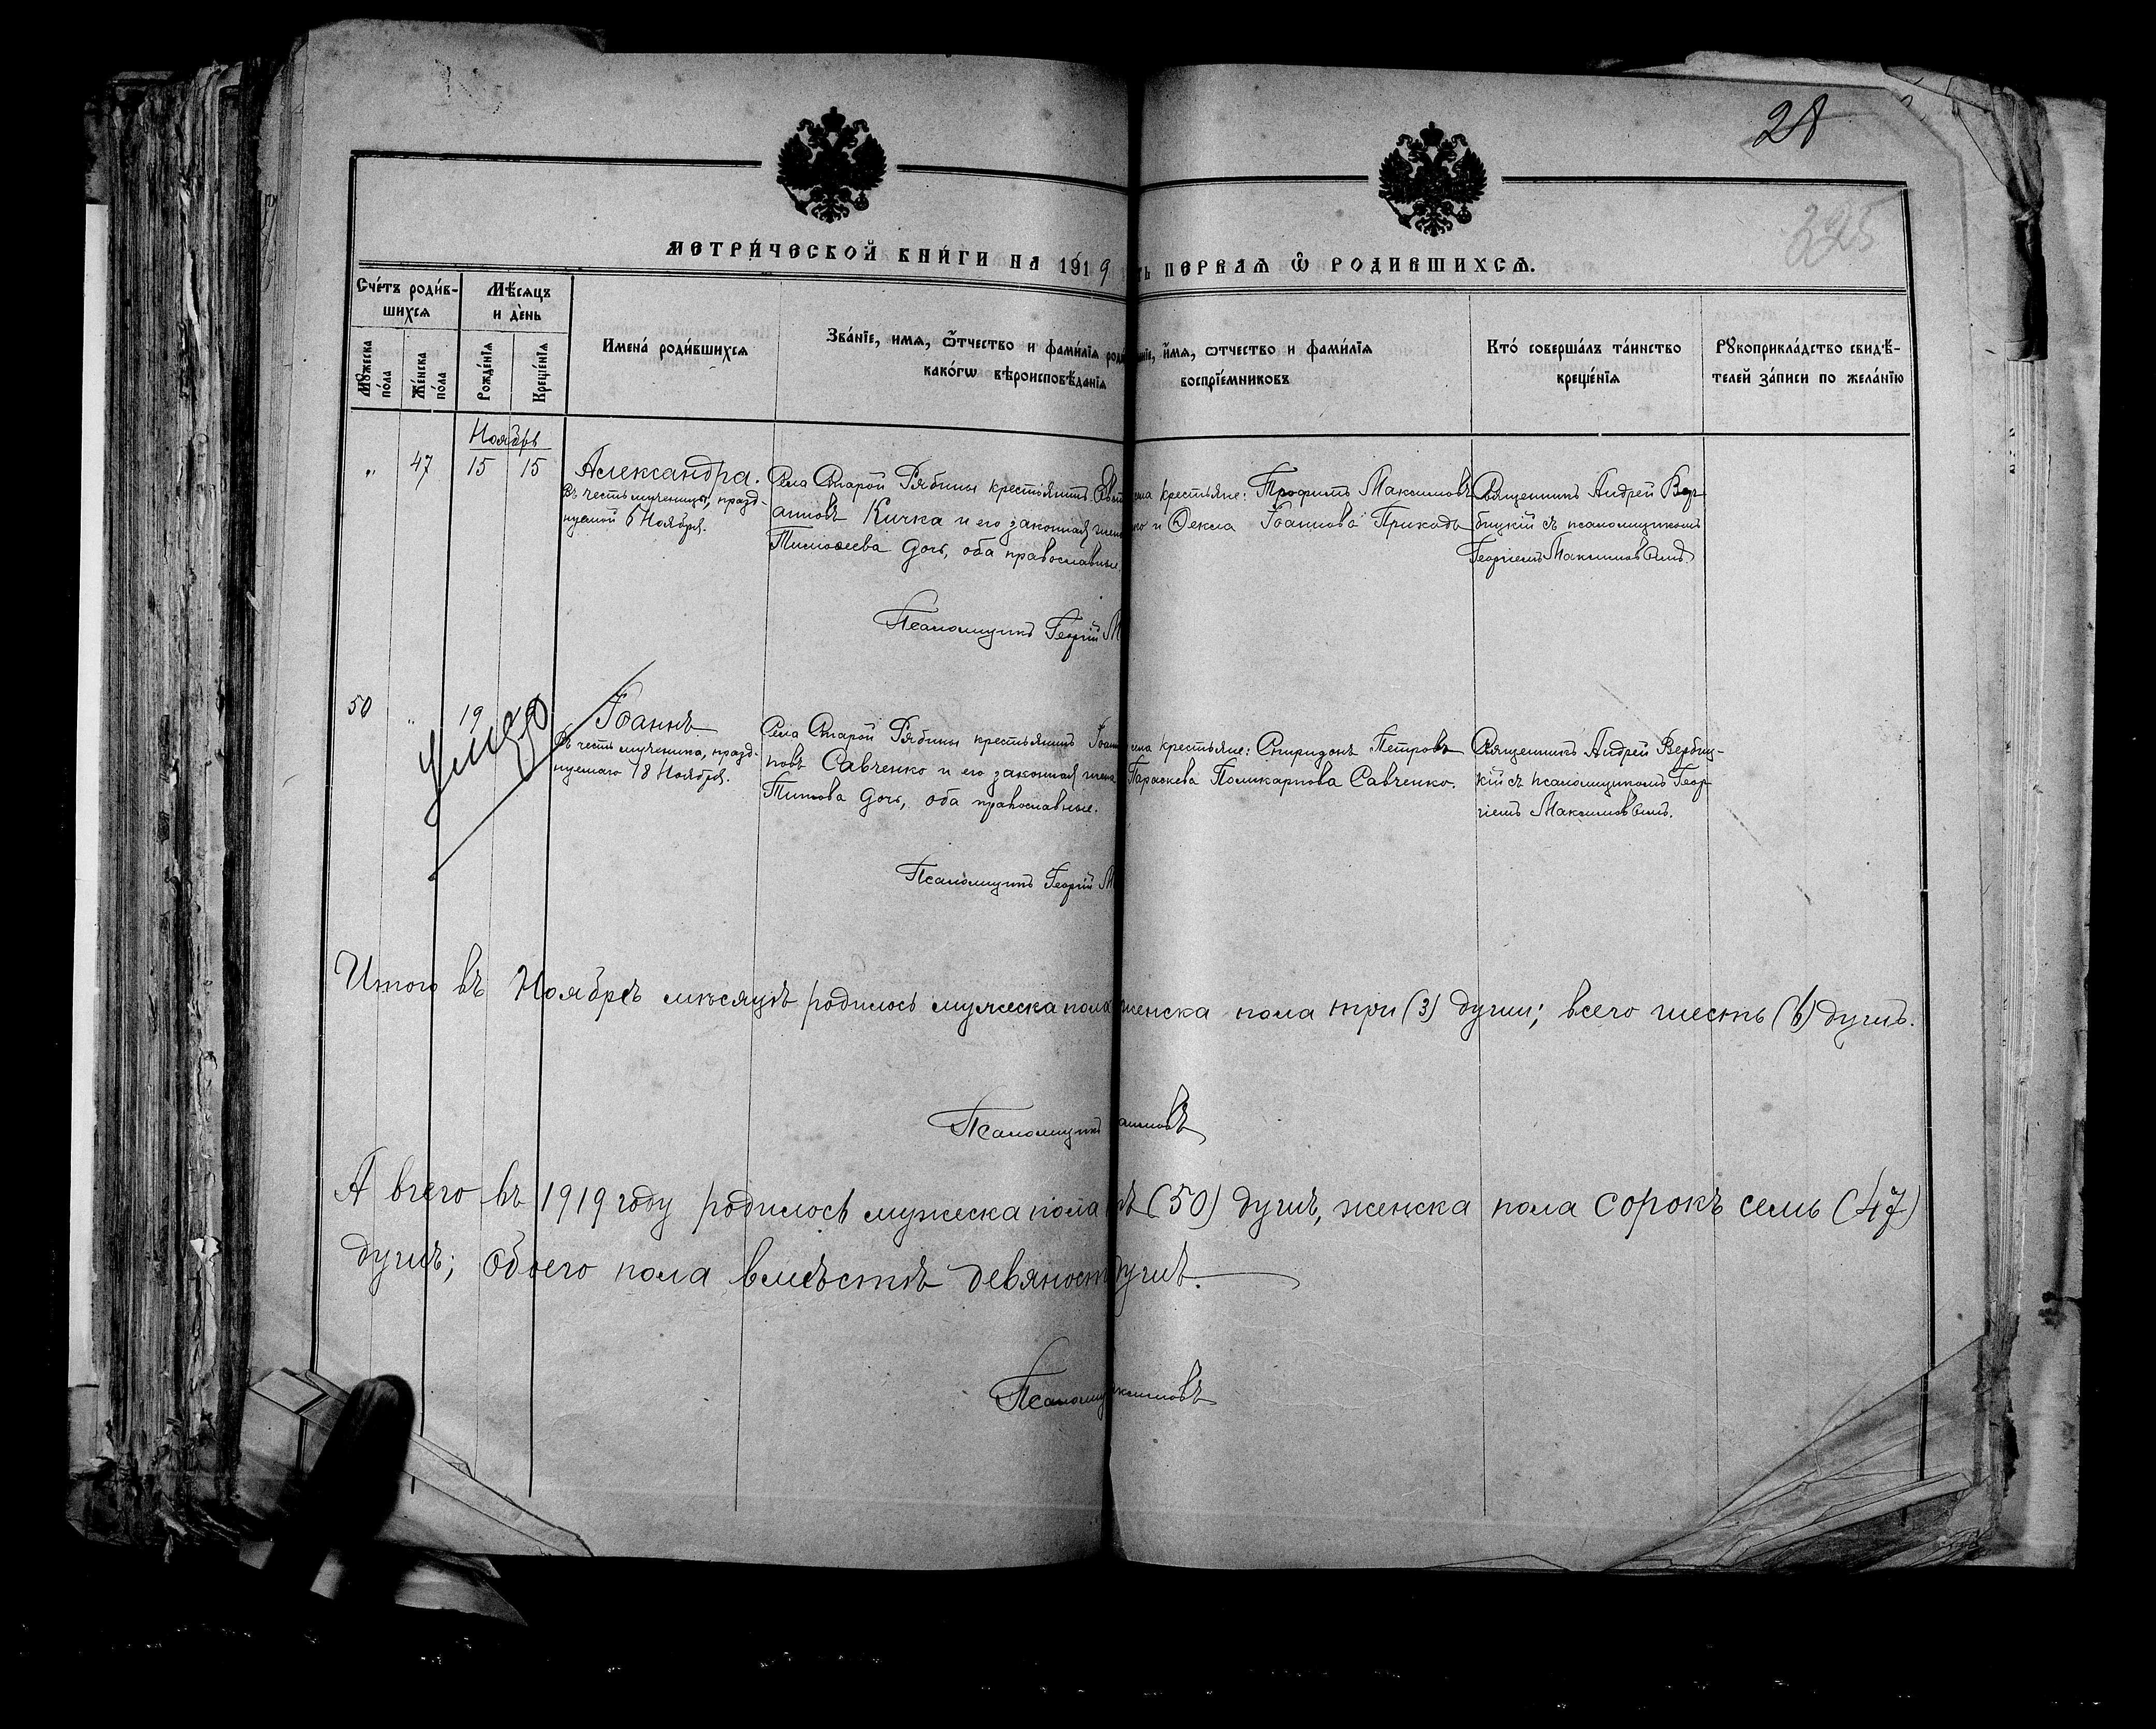 28
325
МЕТРИ́ЧЕСКОЙ КНИ́ГИ НА 1919 ПЕРВАѦ Ѡ҆ РОДИ́ВШИХСѦ.
Сче́тъ роди́в-
шихсѧ
Мꙋ́жеска по́ла
Же́нска по́ла
Мѣ́сѧцъ
и де́нь
Рожде́нїѧ
Креще́нїѧ
Имена́ роди́вшихсѧ
Зва́нїе, имѧ, ѻ҆́тчество и фами́лїѧ роди
како́гѡ вѣроисповѣ́данїѧ
нїе, и́мѧ, ѻтчество и фами́лїѧ
воспрїе́мниковъ
Кто́ соверша́лъ та́инство
креще́нїѧ
Рꙋкоприкла́дство свидѣ́-
телей за́писи по жела́нїю
Ноябрь
„ 47 15 15
Александра.
Въ честь мученицы, празд-
нуемой 6 Ноября.
Села Старой Рябины крестьянинъ
анновъ Кичка и его законная жена
Тимоѳеева дочь, оба православные.
села крестьяне: Трофимъ Максимовъ
ко и Ѳекла Іоаннова Приходь
Священникъ Андрей Вер-
бицкій съ псаломщикомъ
Георгіемъ Максимовымъ.
Псаломщикъ Георгій М
50 „ 19
Умеръ
Іоаннъ
Въ честь мученика, празд-
нуемаго 18 Ноября.
Села Старой Рябины крестьянинъ Іоанн
новъ Савченко и его законная жена
Титова дочь, оба православные.
села крестьяне: Спиридонъ Петровъ
Параскева Поликарпова Савченко.
Священникъ Андрей Вербиц-
кій съ псаломщикомъ Геор-
гіемъ Максимовымъ.
Псаломщикъ Георгій М
Итого въ Ноябрѣ мѣсяцѣ родилось мужеска пола женска пола три (3) души; всего шесть (6) душъ.
Псаломщикъ аксимовъ
А всего въ 1919 году родилось мужеска пола тъ (50) душъ, женска пола сорокъ семь (47)
душъ; обоего пола вмѣстѣ девяност душъ.
Псаломщ ксимовъ